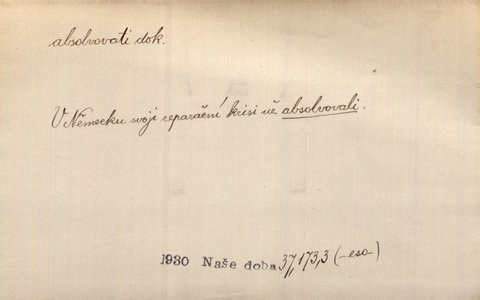 absolvovati dok.
V Německu svoji reparační krisi už absolvovali.
1930 Naše doba 37,173,3 (-esa-)